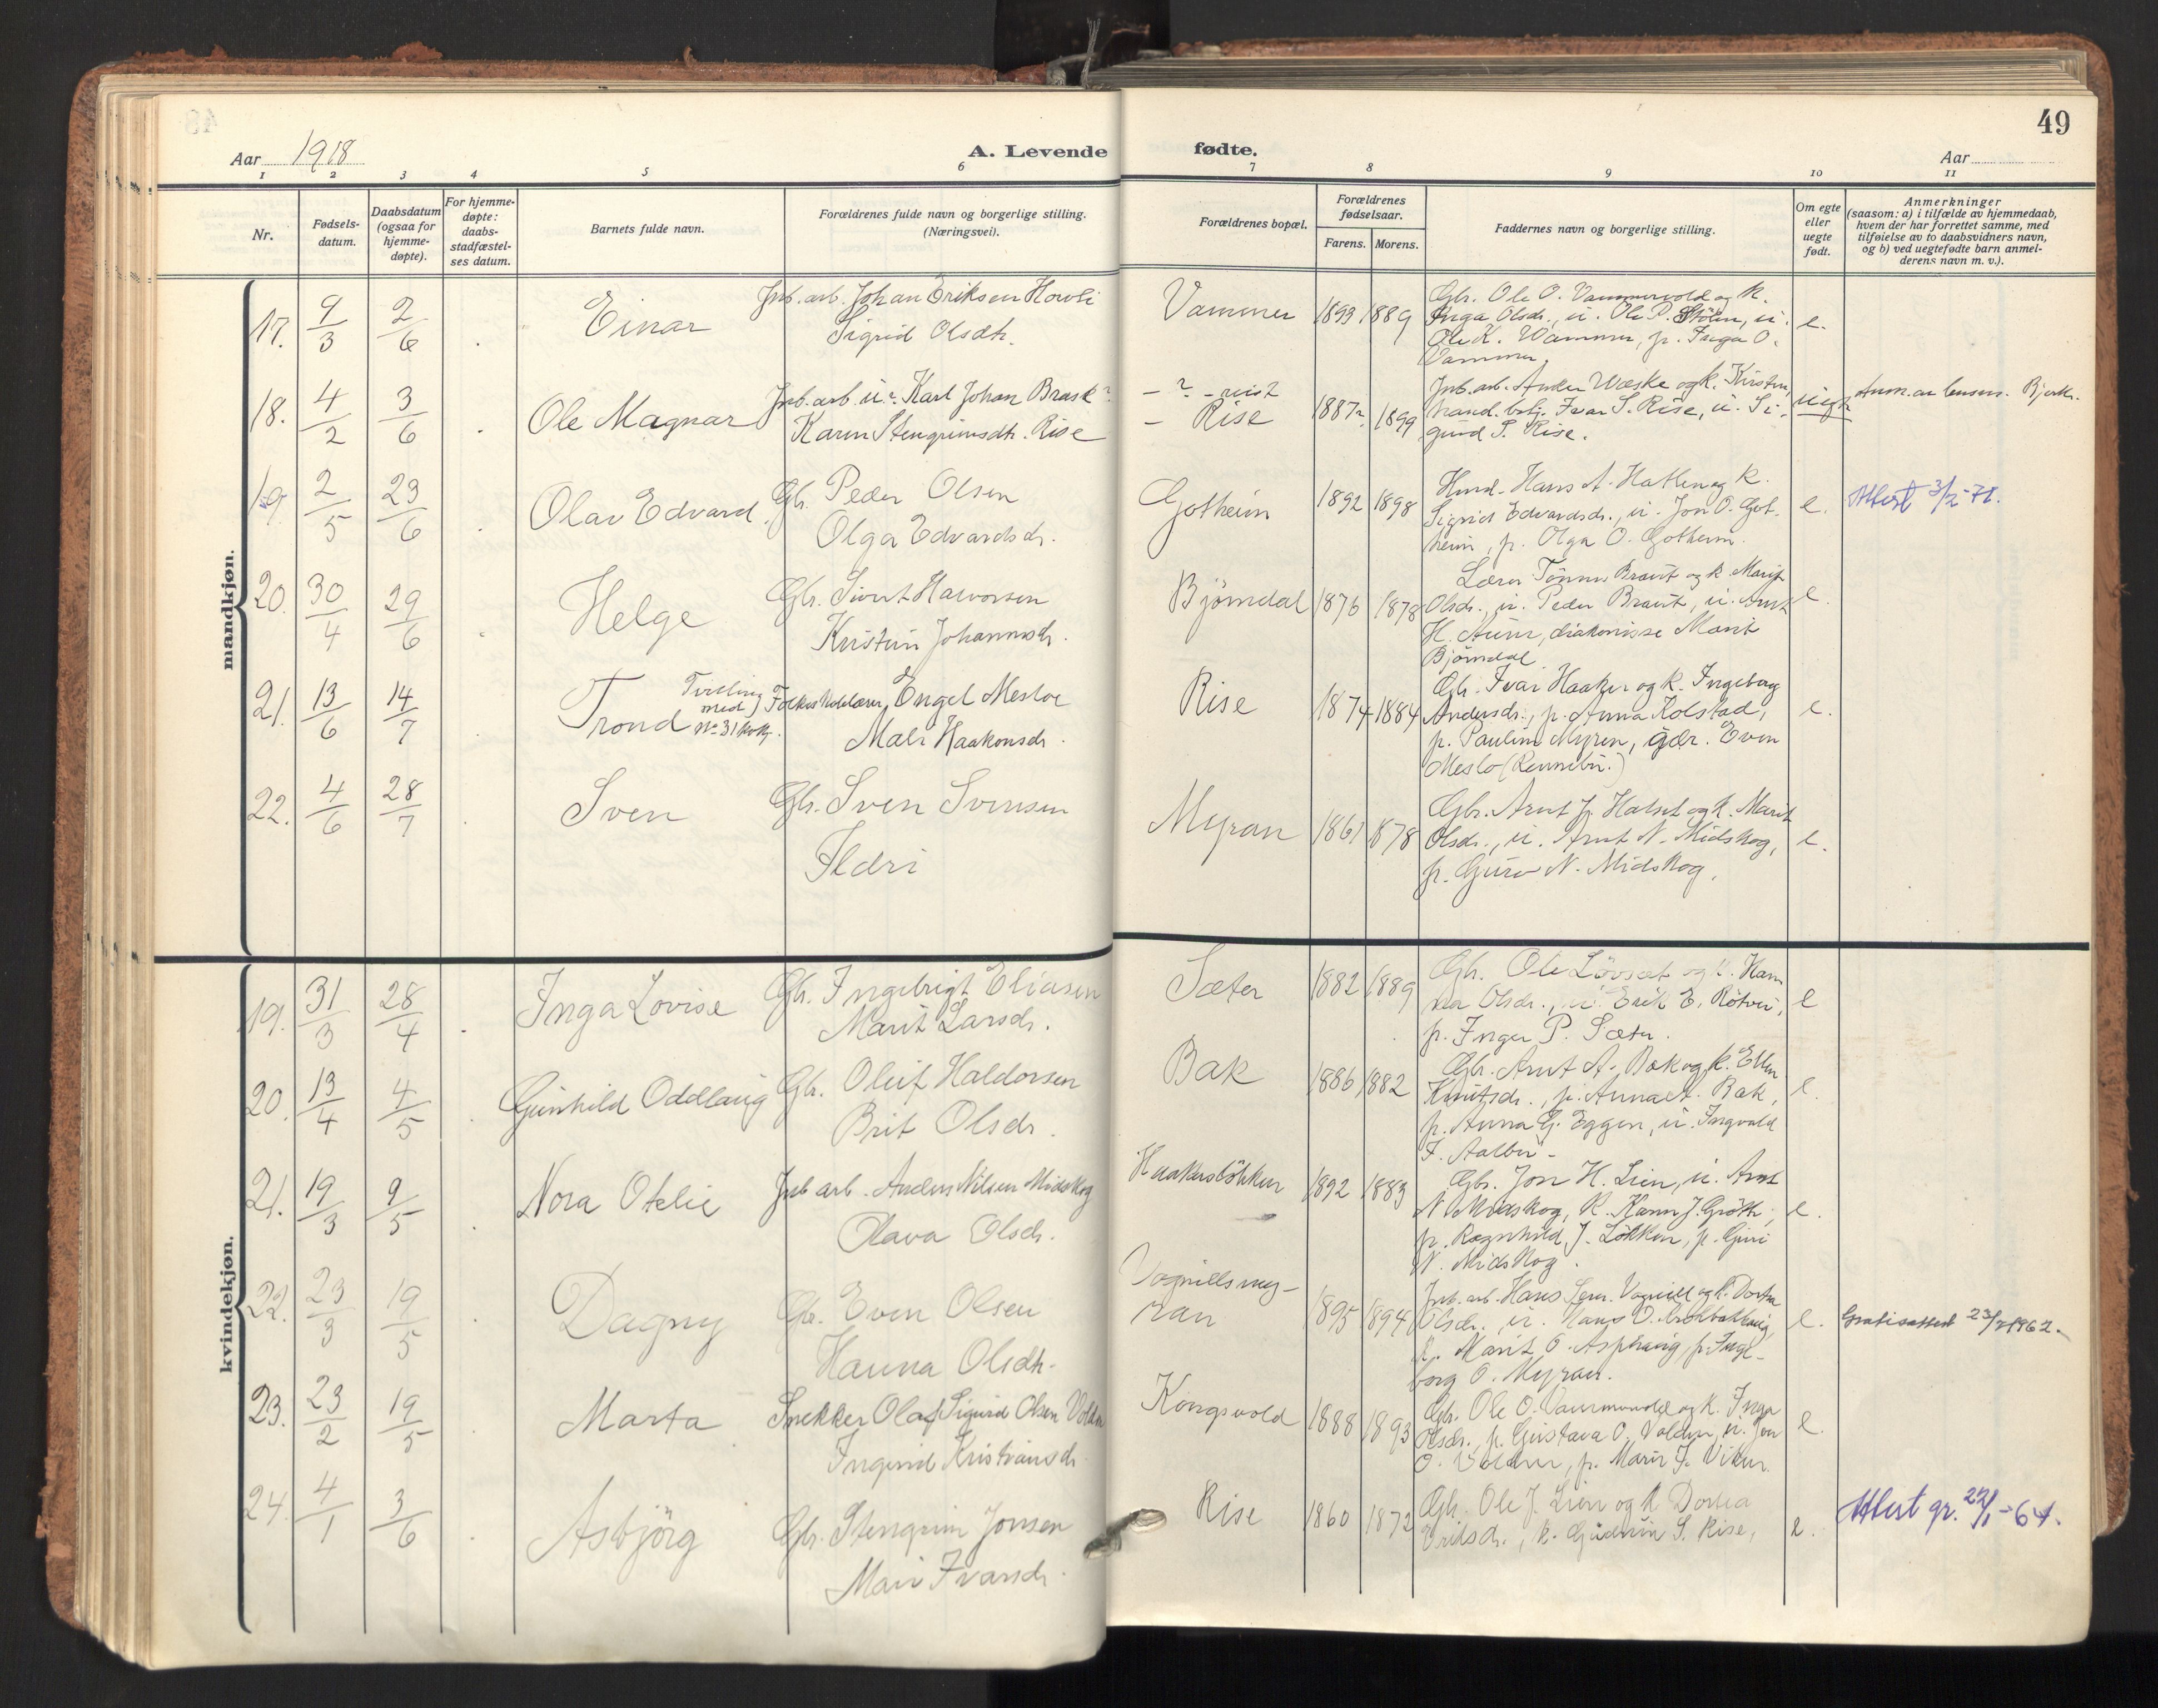 49
Aar 1918
A. Levende
fødte.
Aar
1 2 3 4 5 6 7 8 9 10 11
Nr.
Fødsels-
datum.
Daabsdatum
(ogsaa for
hjemme-
døpte).
For hjemme-
døpte:
daabs-
stadfæstel-
ses datum.
Barnets fulde navn.
Forældrenes fulde navn og borgerlige stilling.
(Næringsvei).
Forældrenes bopæl.
Forældrenes
fødselsaar.
Farens. Morens.
Faddernes navn og borgerlige stilling.
Om egte
eller
uegte
født.
Anmerkninger
(saasom: a) i tilfælde av hjemmedaab,
hvem der har forrettet samme, med
tilføielse av to daabsvidners navn,
og b) ved uegtefødte barn anmel-
derens navn m. v.).
mandkjøn.
17. 9/3 2/6 Einar
Jnb. arb. Johan Eriksen
Sigrid Olsdtr.
Vammer 1893 1889
Gbr. Ole O. Vammervold og k.
Inga Olsdr., u. Ole P. Stölen, u.
Ole K. Vammer, p. Inga O.
Vammer.
e.
18. 4/2 3/6 Ole Magnar
Jnb. arb. u.? Karl Johan Brask?
Karen Stengrimsdtr. Rise
- ? - vist
- Rise 1887? 1899
Jnb. arb. og k. Kirsten,
Ivar S. Rise, u. Si-
gurd S. Rise.
uegte
Anm. av
19. 2/5 23/6 Olav Edvard
Gbr. Peder Olsen
Olga Edvardsdr.
Gotheim 1892 1898
Hans A. Hatlen og k.
Sigrid Edvardsdr., u. Jon O. Got-
heim, p. Olga O. Gotheim.
e.
Attest 3/2-71.
20. 30/4 29/6 Helge
Gbr. Sivert Halvorsen
Kristin Johannesdr.
Björndal 1876 1878
Lærer Tönnes Braut og k. Marit
Olsdr., u. Peder Braut, u. Arnt
H. Aune, diakonisse Marit
Björndal.
e.
21. 13/6 14/7 Trond
Tvilling
med
No 31 kvkj.
Folkeskolelærer Engel Mesloe
Mali Haakonsdr.
Rise 1874 1884
Gbr. Ivar Haaker og k. Ingeborg
Andersdr., p. Anna Kolstad,
p. Pauline Myren, gdr. Even
Meslo (Rennebu.)
e.
22. 4/6 28/7 Sven
Gbr. Sven Svensen
Ildri
Myran 1861 1878
Gbr. Arnt J. Halset og k. Marit
Olsdr., u. Arnt N. Midskog,
p. Guro N. Midskog.
e.
kvindekjøn.
19. 31/3 28/4 Inga Lovise
Gbr. Ingebrigt Eliasen
Marit Larsdr.
Sæter 1882 1889
Gbr. Ole Lövset og k. Han
na Olsdr., u. Erik E. Rötvei,
p. Inger P. Sæter.
e
20. 13/4 4/5 Gunhild Oddlaug
Gbr. Oluf Haldorsen
Brit Olsdr.
Bak 1886 1882
Gbr. Arnt A. Bak og k. Ellen
Knutsdr., p. Anna A. Bak,
p. Anna G. Eggen, u. Ingvald
I. Aalbu.
e.
21. 19/3 9/5 Nora Otelie
Jnb arb. Anders Nilsen Midskog
Olava Olsdr.
Haakerlökken 1892 1883
Gbr. Jon H. Lien, u. Arnt
N. Midskog, k. Karen J. Gröthe,
p. Ragnhild J. Løkken, p. Guri
N. Midskog.
e.
22. 23/3 19/5 Dagny
Gbr. Even Olsen
Hanna Olsdtr.
Vognillsmy-
ran 1895 1894
Jnb. arb. Hans Vognill og k. Dortea
Olsdr. u. Hans O.
Marit O. Asphaug, p. Inge-
borg O. Myran.
e.
Gratisattest 23/2 1962.
23. 23/2 19/5 Marta
Snekker Olaf Sigurd Olsen Volden
Ingrid Kristiansdr.
Kongsvold 1888 1893
Gbr. Ole O. Vammervold og k. Inga
Olsdr., p. Gustava O. Volden, u. Jon
O. Volden, p. Marit J. Viken.
e.
24. 4/1 3/6 Asbjörg
Gbr. Stengrim Jonsen
Mari Ivarsdr.
Rise 1860 1872
Gbr. Ole J. Lien og k. Dortea
Eriksdr., k. Gudrun S. Rise,
e.
Attest gr. 22/1-64.